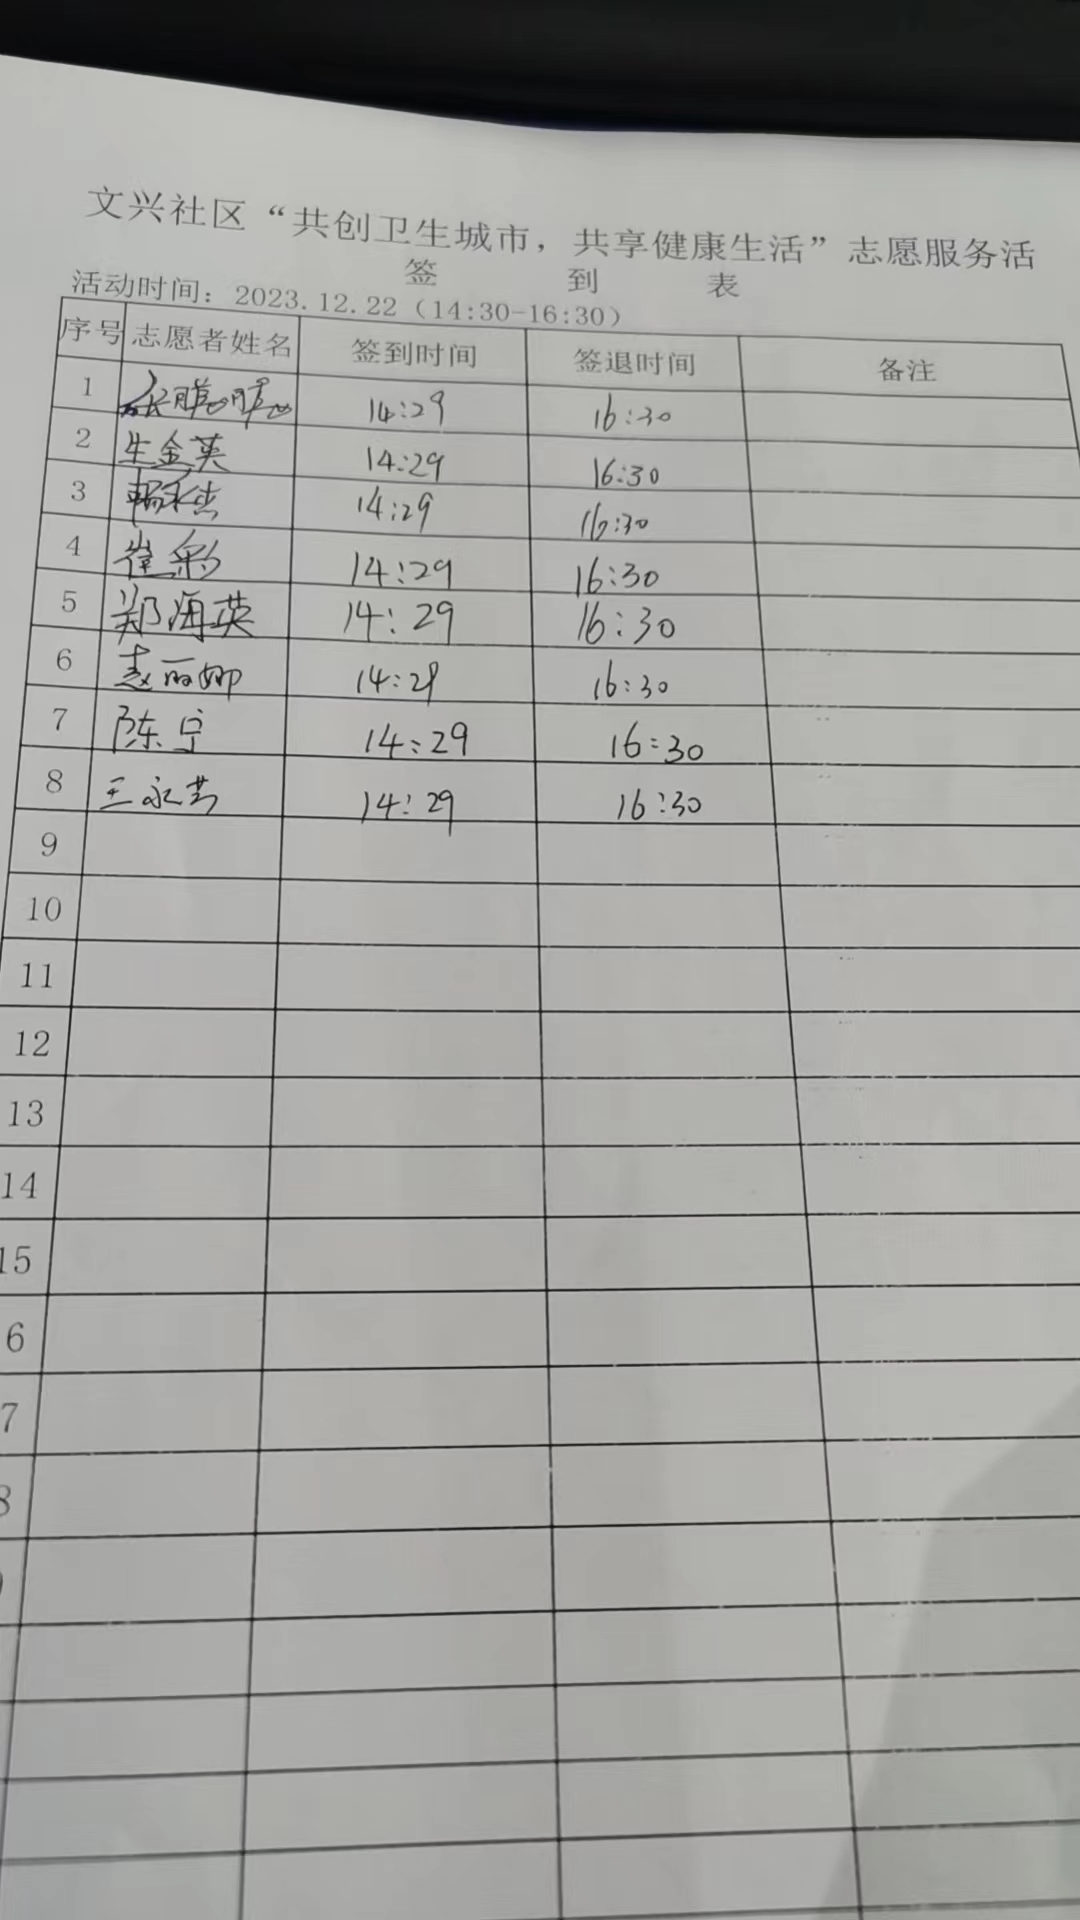 文兴社区“共创卫生城市，共享健康生活”志愿服务活
签 到 表
活动时间：2023.12.22（14:30-16:30）
序号 志愿者姓名 签到时间 签退时间 备注
1 14:29 16:30
2 牛金英 14:29 16:30
3 14:29 16:30
4 崔彩 14:29 16:30
5 郑海英 14:29 16:30
6 袁丽娜 14:29 16:30
7 陈宁 14:29 16:30
8 王永芳 14:29 16:30
9
10
11
12
13
14
15
6
7
8